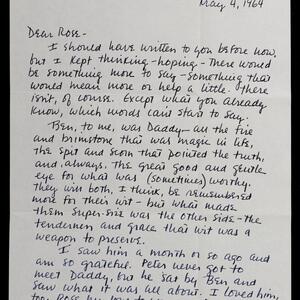 May 4, 1964
Dear Rose -
I should have written to you before now,
but I kept thinking - hoping - there would
be something more to say - something that
would mean more or help a little. There
isn't, of course. Except what you already
know, which words can't start to say.
Ben, to me, was Daddy - all the fire
and brimstone that was magic in life,
the spit and scorn that pointed the truth,
and, always, the great good and gentle
eye for what was (sometimes) worthy.
They will both, I think, be remembered
more for their wit - but what made
them super-size was the other side - the
tenderness and grace that wit was a
weapon to preserve.
I saw him a month or so ago and
am so grateful. Peter never got to
meet Daddy, but he sat by Ben and
saw what it was all about. I loved him,
too. Rose